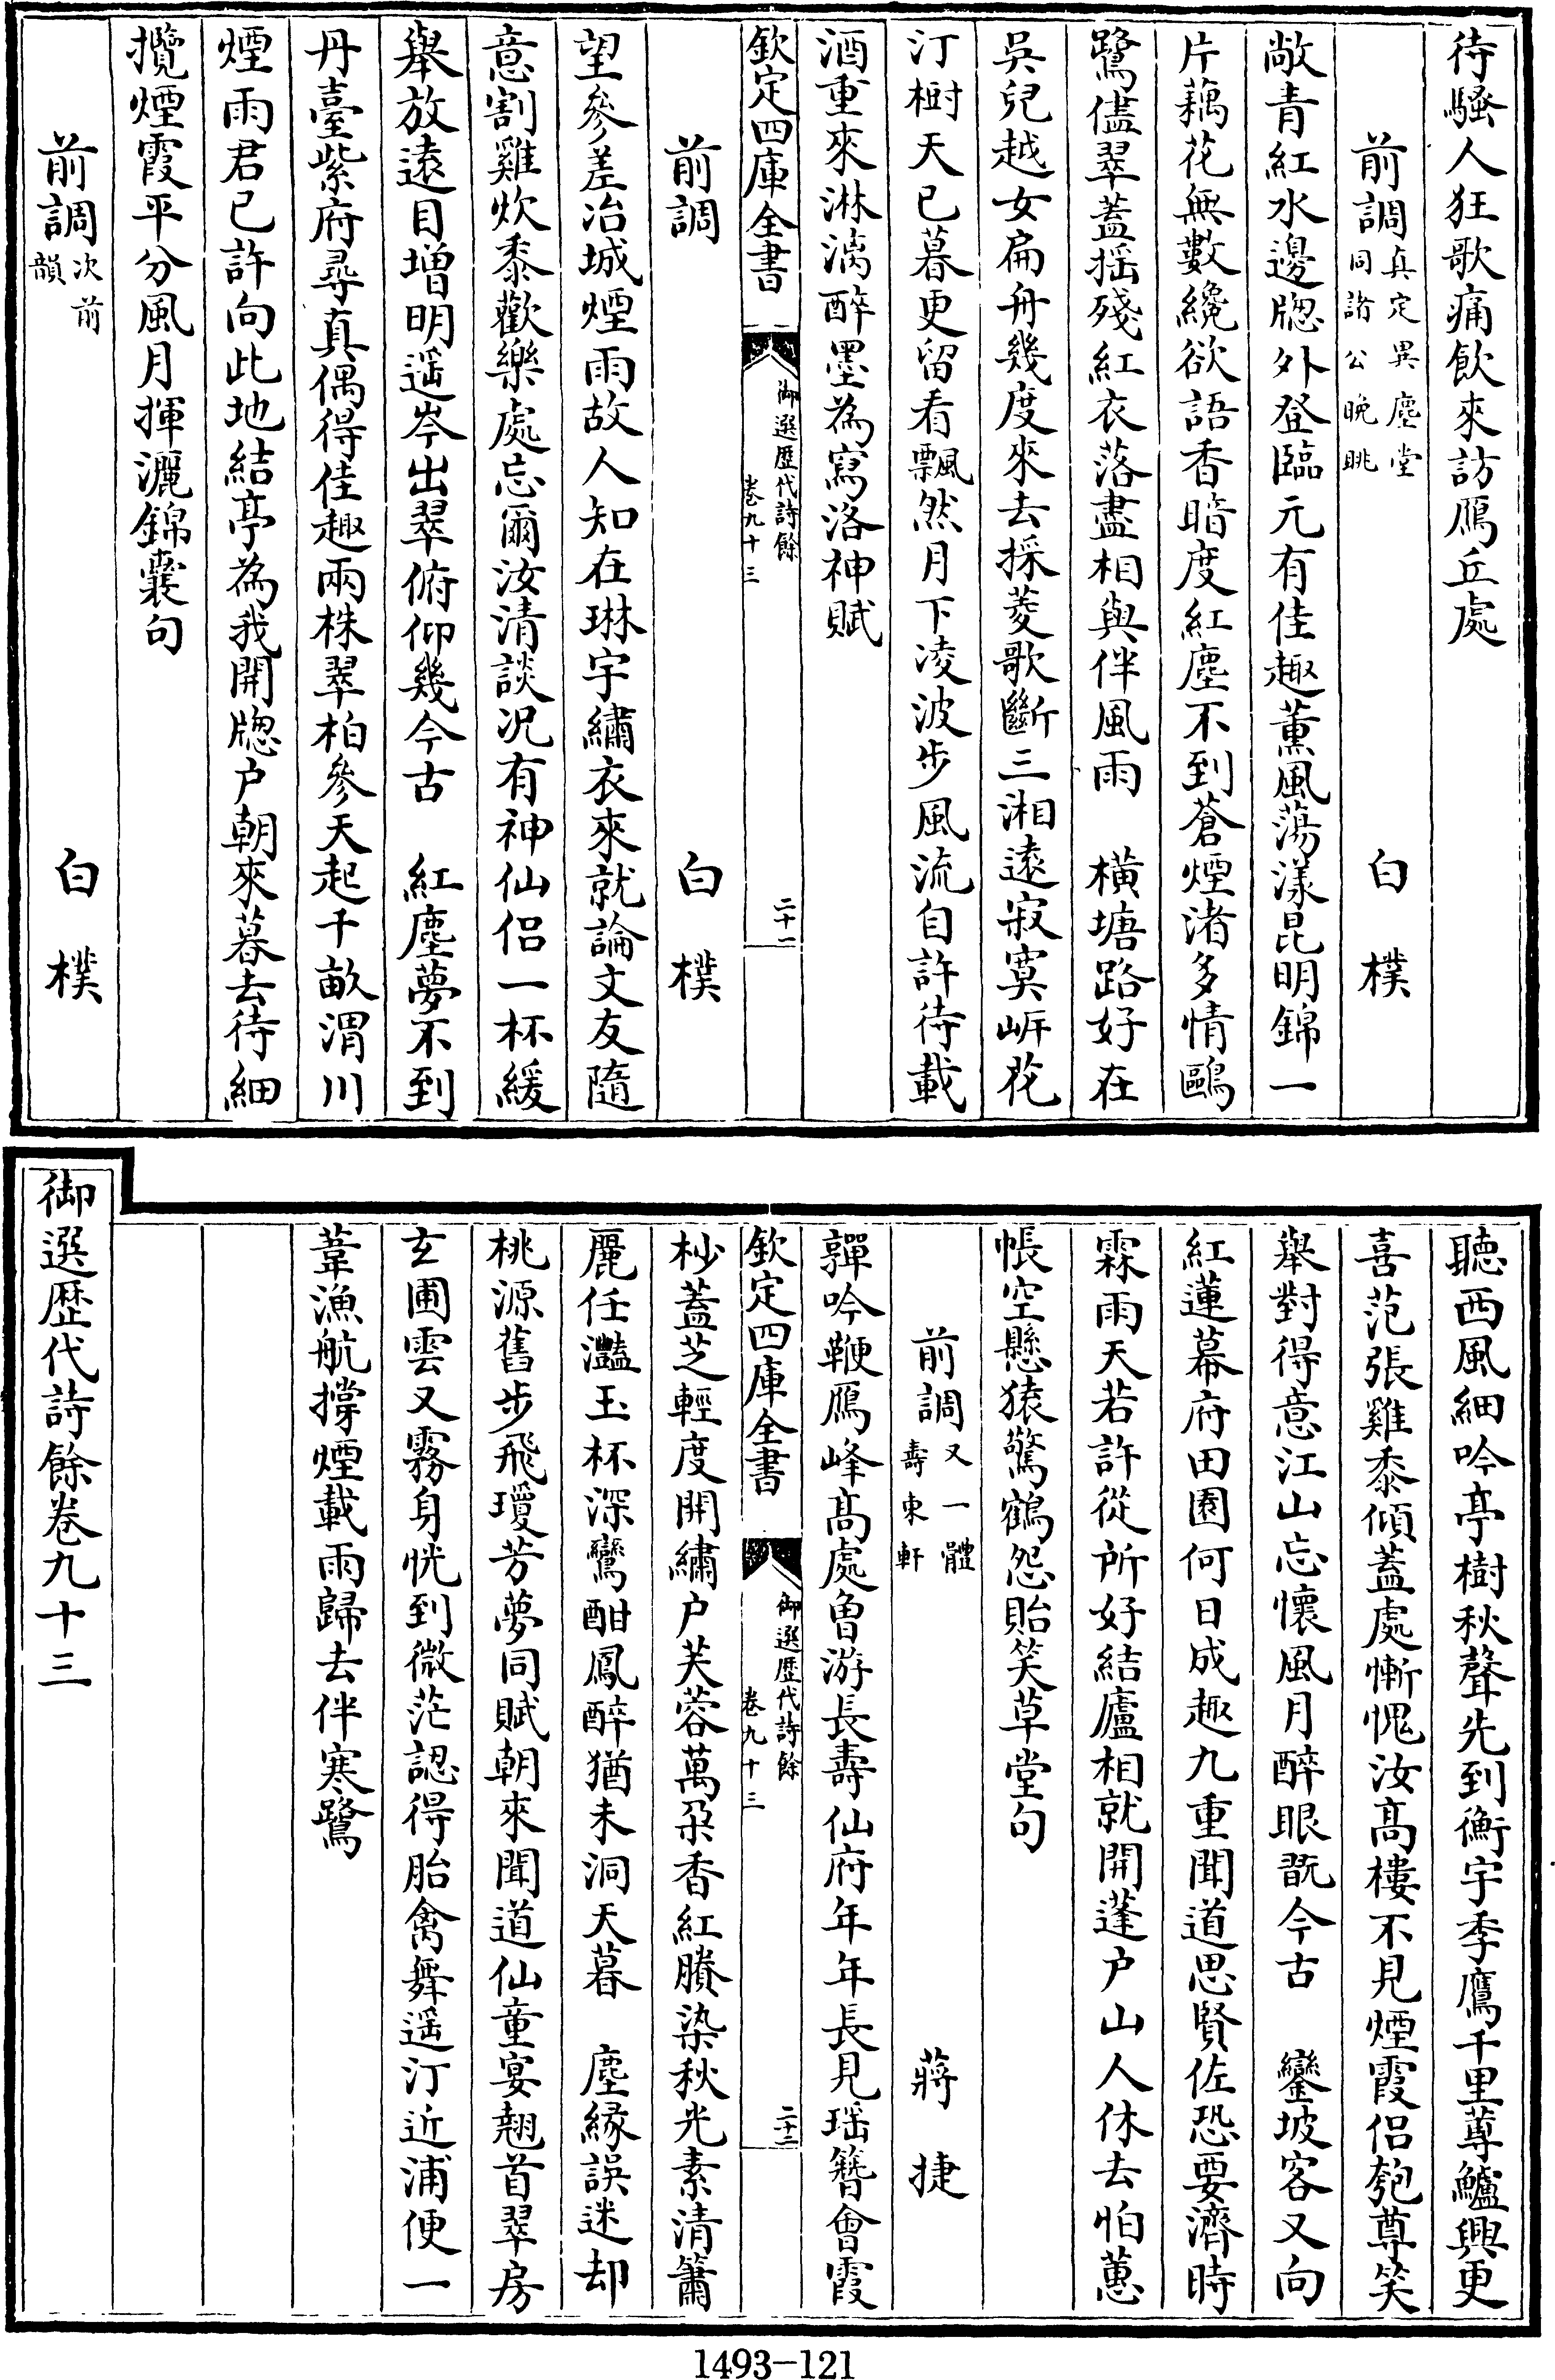 待騷人狂歌痛飲來訪鴈丘處
前調真定異塵堂同諸公晚眺 白樸
敞青紅水邊牎外登臨元有佳趣薰風蕩漾昆明錦一
片藕花無數纔欲語香暗度紅塵不到蒼煙渚多情鷗
鷺儘翠蓋揺殘紅衣落盡相與伴風雨 橫塘路好在
吳兒越女扁舟幾度來去採菱歌斷三湘遠寂寞岍花
汀樹天已暮更留看飄然月下凌波步風流自許待載
酒重來淋漓醉墨為寫洛神賦
欽定四庫全書 御選歴代詩餘 卷九十三 二十一
前調 白樸
望參差冶城煙雨故人知在琳宇繡衣來就論文友隨
意割雞炊黍歡樂處忘爾汝清談况有神仙侣一杯緩
舉放遠目增明遥岑出翠俯仰幾今古 紅塵夢不到
丹臺紫府尋真偶得佳趣兩株翠柏參天起千畝渭川
煙雨君已許向此地結亭為我開牎户朝來暮去待細
攬煙霞平分風月揮灑錦囊句
前調次前韻 白樸
聽西風細吟亭樹秋聲先到衡宇季鷹千里蓴鱸興更
喜范張雞黍傾蓋處慚愧汝髙樓不見煙霞侣匏尊笑
舉對得意江山忘懷風月醉眼翫今古 鑾坡客又向
紅蓮幕府田園何日成趣九重聞道思賢佐恐要濟時
霖雨天若許從所好結廬相就開蓬户山人休去怕蕙
帳空懸猿驚鶴怨貽笑草堂句
前調又一體壽東軒 蔣捷
嚲吟鞭鴈峰髙處曾游長壽仙府年年長見瑶簪會霞
欽定四庫全書 御選歴代詩餘 卷九十三 二十二
杪蓋芝輕度開繡户芙蓉萬朶香紅賸染秋光素清簫
麗任灩玉杯深鸞酣鳳醉猶未洞天暮 塵緣誤迷却
桃源舊步飛瓊芳夢同賦朝來聞道仙童宴翹首翠房
玄圃雲又霧身恍到微茫認得胎禽舞遥汀近浦便一
葦漁航撐煙載雨歸去伴寒鷺
御選歴代詩餘卷九十三
1493-121